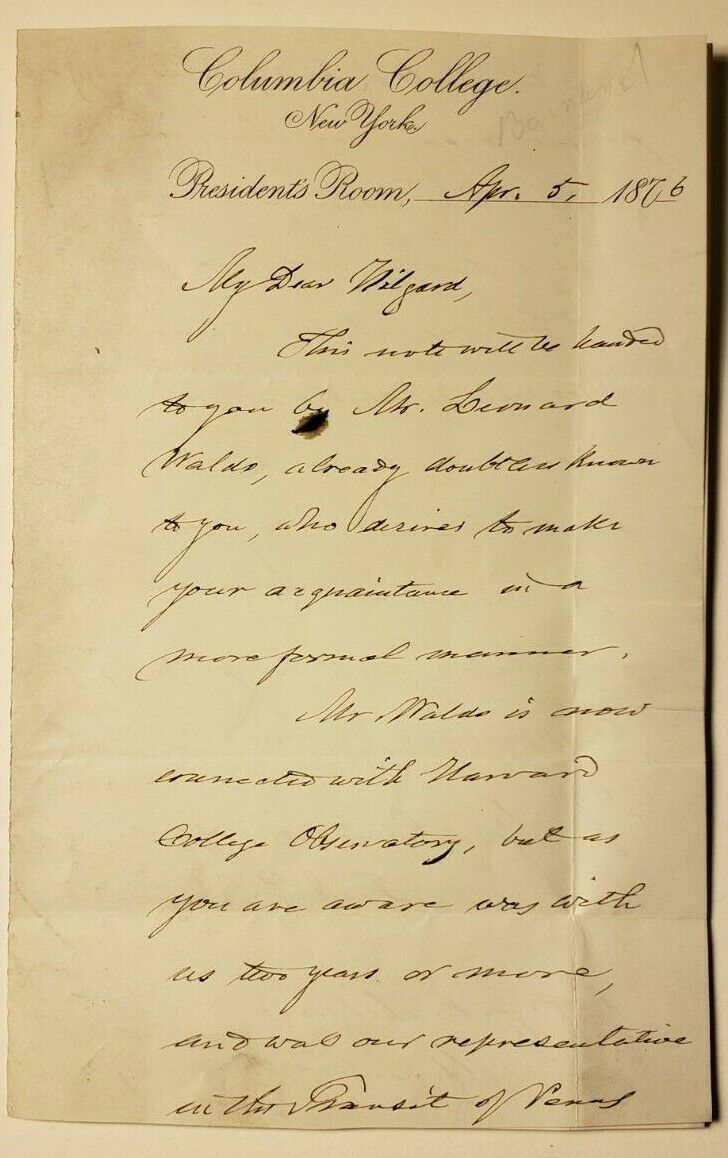 Columbia College.
New York.
President's Room, Apr. 5, 1876
My Dear Hilgard,
This note will be handed
to you by Mr. Leonard
Waldo, already doubtless known
to you, who desires to make
your acquaintance in a
more formal manner.
Mr. Waldo is now
connected with Harvard
College Observatory, but as
you are aware was with
us two years or more,
and was our representative
in the Transit of Venus